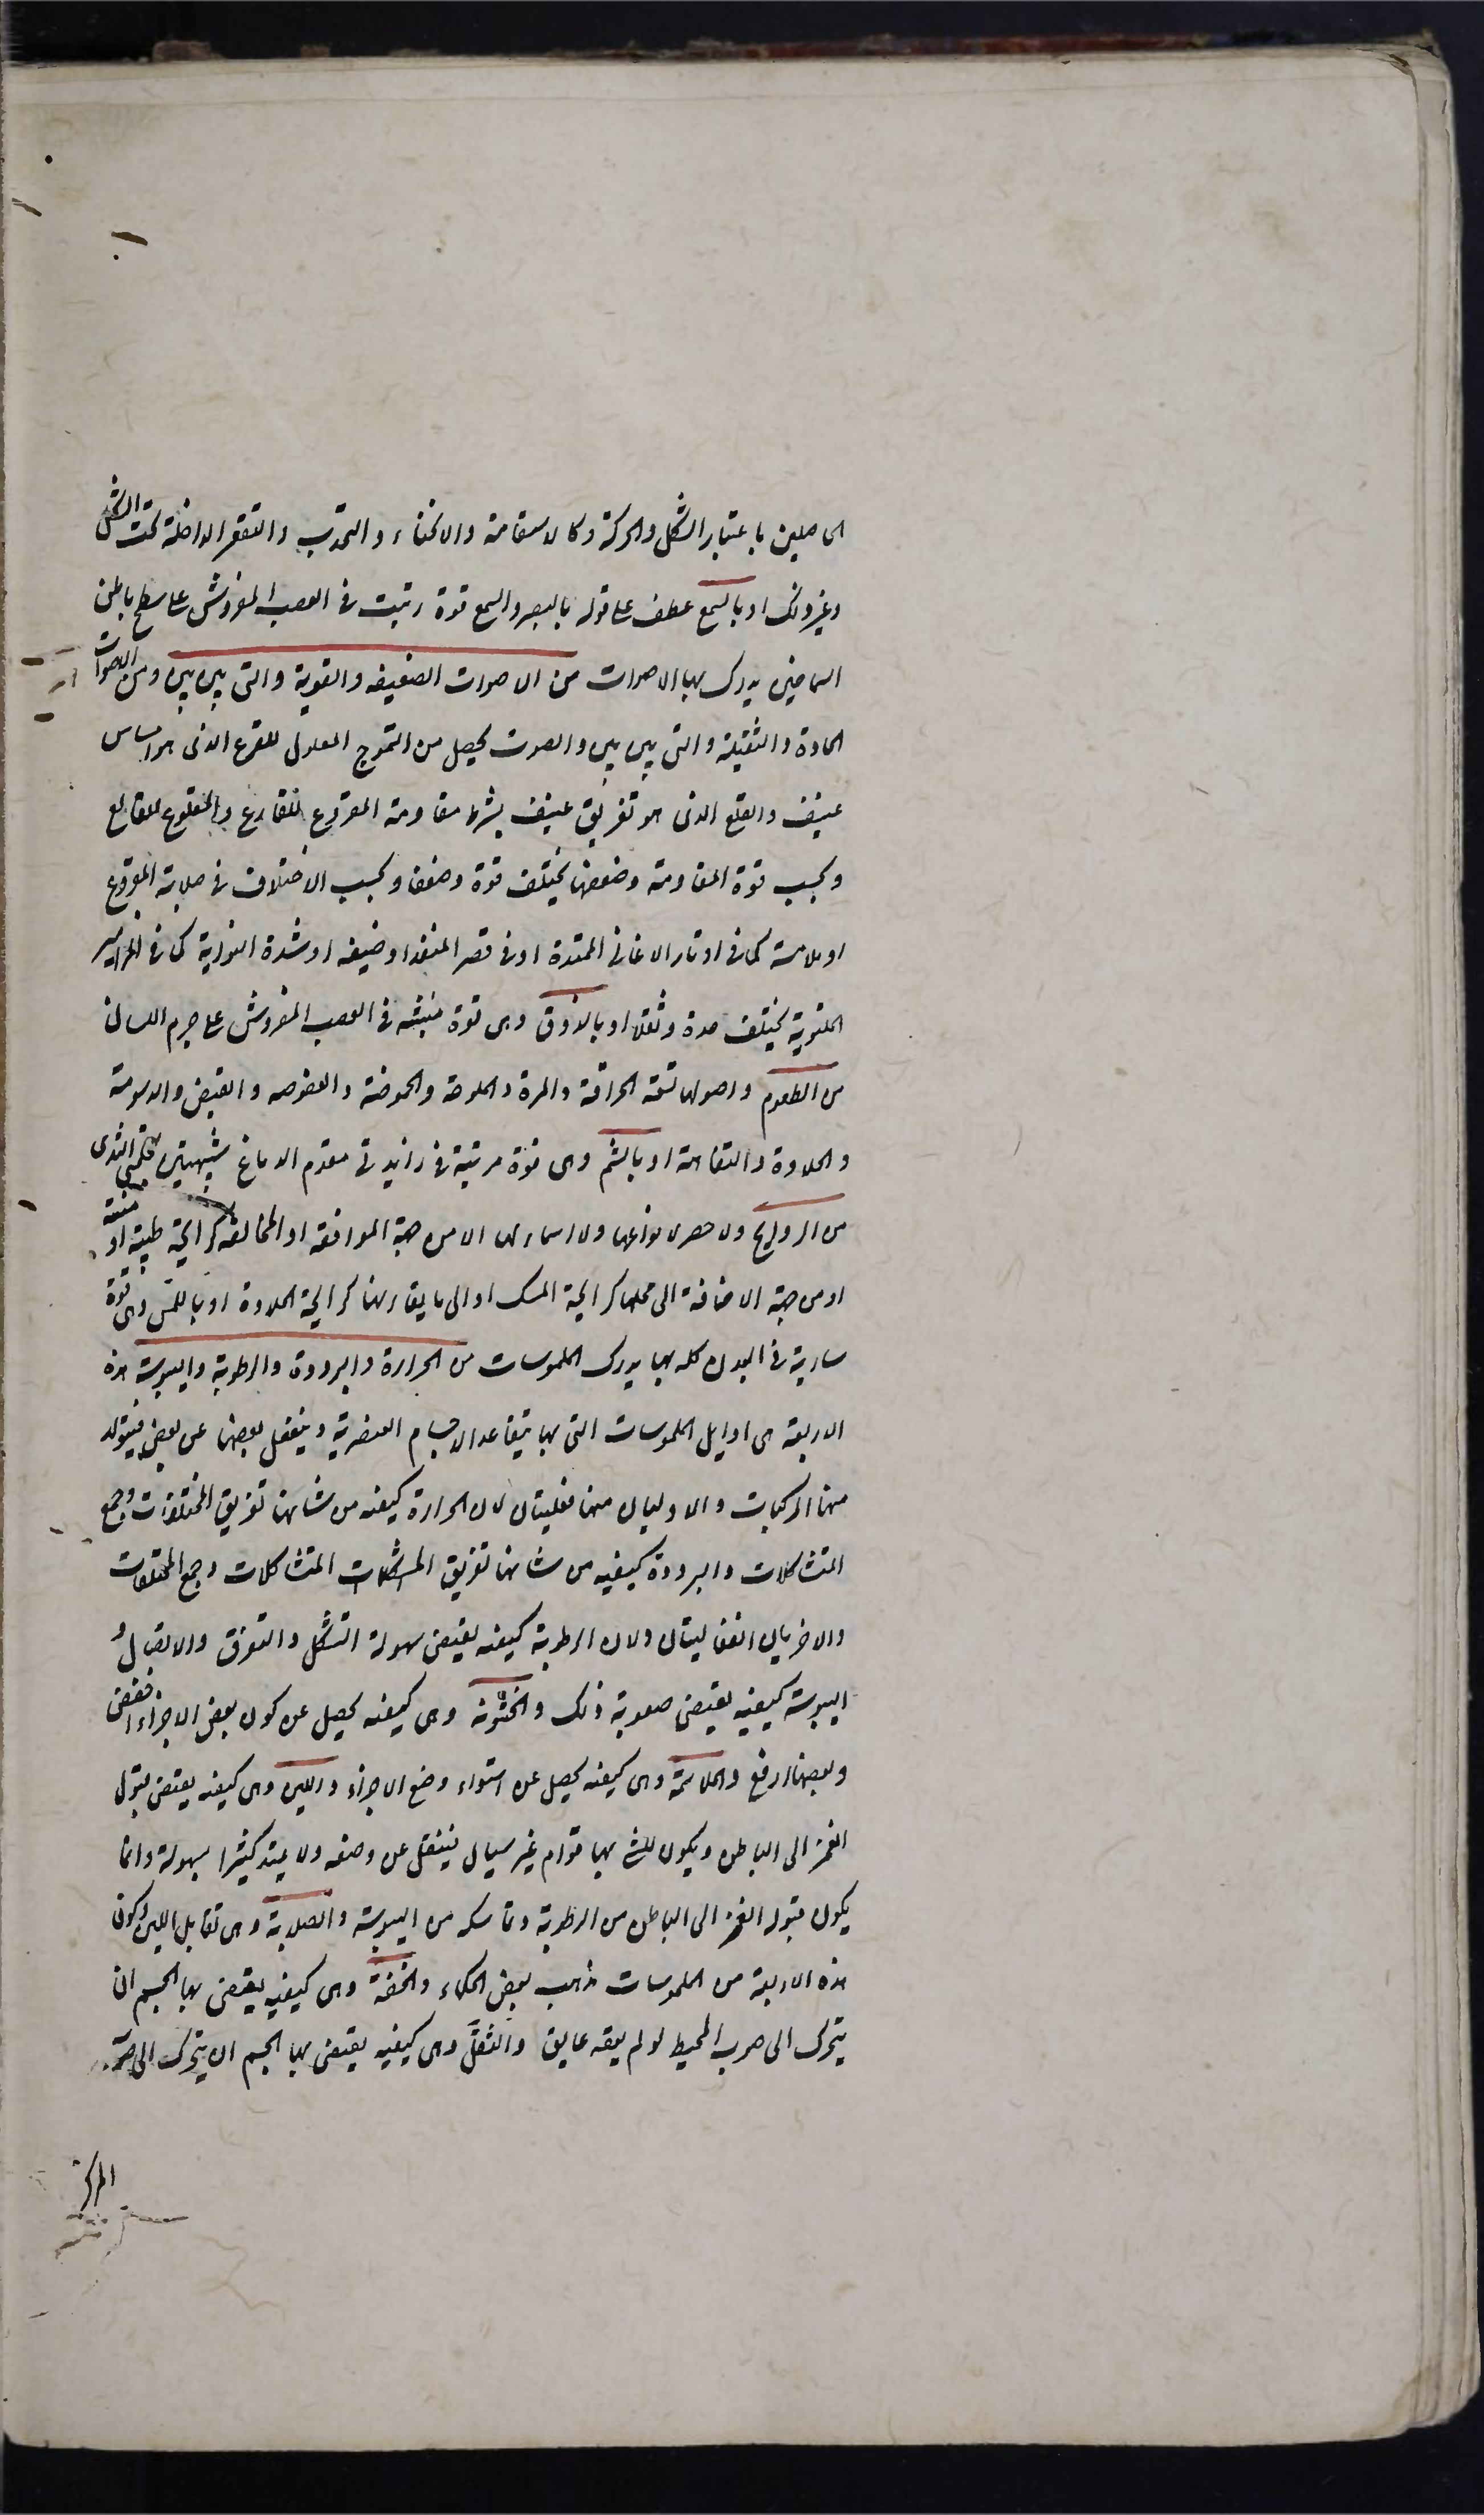 الحاصلين باعتبار الشكل والحركة وكالاستقامة والانحناء والتحدب والتقعر الداخلة تحت الشكل
وغير ذلك او بالسمع عطف على قوله بالبصر والسمع قوة رتبت فى العصب المفروش على سطح باطن
الصماخين يدرك بها الاصوات من الاصوات الضعيفه والقوية والتى بين بين ومن الاصوات
الحادة والثقيلة والتى بين بين والصوت يحصل من التموج المعلول للقرع الذى هو امساس
عنيف والقلع الذى هو تفريق عنيف بشرط مقاومة المقروع للقارع والمقلوع للقالع
وبحسب قوة المقاومة وضعفها يختلف قوة وضعفا وبحسب الاختلاف فى صلابة المقروع
او ملاسته كما فى اوتار الاغانى الممتدة او فى قصر المنفذ او ضيقه او شدة التوائه كما فى المزامير
الملتوية يختلف حدة وثقلا او بالذوق وهى قوة منبثة فى العصب المفروش على جرم اللسان
من الطعوم واصولها تسعة الحرافة والمرة والملوحة والحموضة والعفوصه والقبض والدسومة
والحلاوة والتفاهة او بالشم وهى قوة مرتبة فى زائدتى مقدم الدماغ شبيهتين بحلمتى الثدى
من الروايح ولا حصر لانواعها ولا اسماء لها الا من جهة الموافقه او المخالفه كرايحة طيبة او منتنة
او من جهة الاضافة الى محلها كرايحة المسك او الى ما يقارنها كرايحة الحلاوة او باللمس وهى قوة
سارية فى البدن كله بها يدرك الملموسات من الحرارة والبرودة والرطوبة واليبوسة هذه
الاربعة هى اوايل الملموسات التى بها يتفاعل الاجسام العنصرية وينفعل بعضها عن بعض فيتولد
منها المركبات والاوليان منها فعليتان لان الحرارة كيفيه من شانها تفريق المختلفات وجمع
المتشاكلات والبرودة كيفيه من شانها تفريق المتشاكلات وجمع المختلفات
والاخريان انفعاليتان ولان الرطوبة كيفيه يقتضى سهولة التشكل والتفرق والاتصال و
اليبوسة كيفيه يقتضى صعوبة ذلك والخشونة وهى كيفيه يحصل عن كون بعض الاجزاء اخفض
وبعضها ارفع والملاسة وهى كيفيه يحصل عن استواء وضع الاجزاء واللين وهى كيفيه يقتضى قبول
الغمز الى الباطن ويكون للشىء بها قوام غير سيال فينتقل عن وضعه ولا يمتد كثيرا بسهولة وانما
يكون قبوله الغمز الى الباطن من الرطوبة وتماسكه من اليبوسة والصلابة وهى تقابل اللين وكون
هذه الاربعة من الملموسات مذهب بعض الحكماء والخفة وهى كيفيه يقتضى بها الجسم ان
يتحرك الى صوب المحيط لو لم يعقه عايق والثقل وهى كيفيه يقتضى بها الجسم ان يتحرك الى صوب
المركز